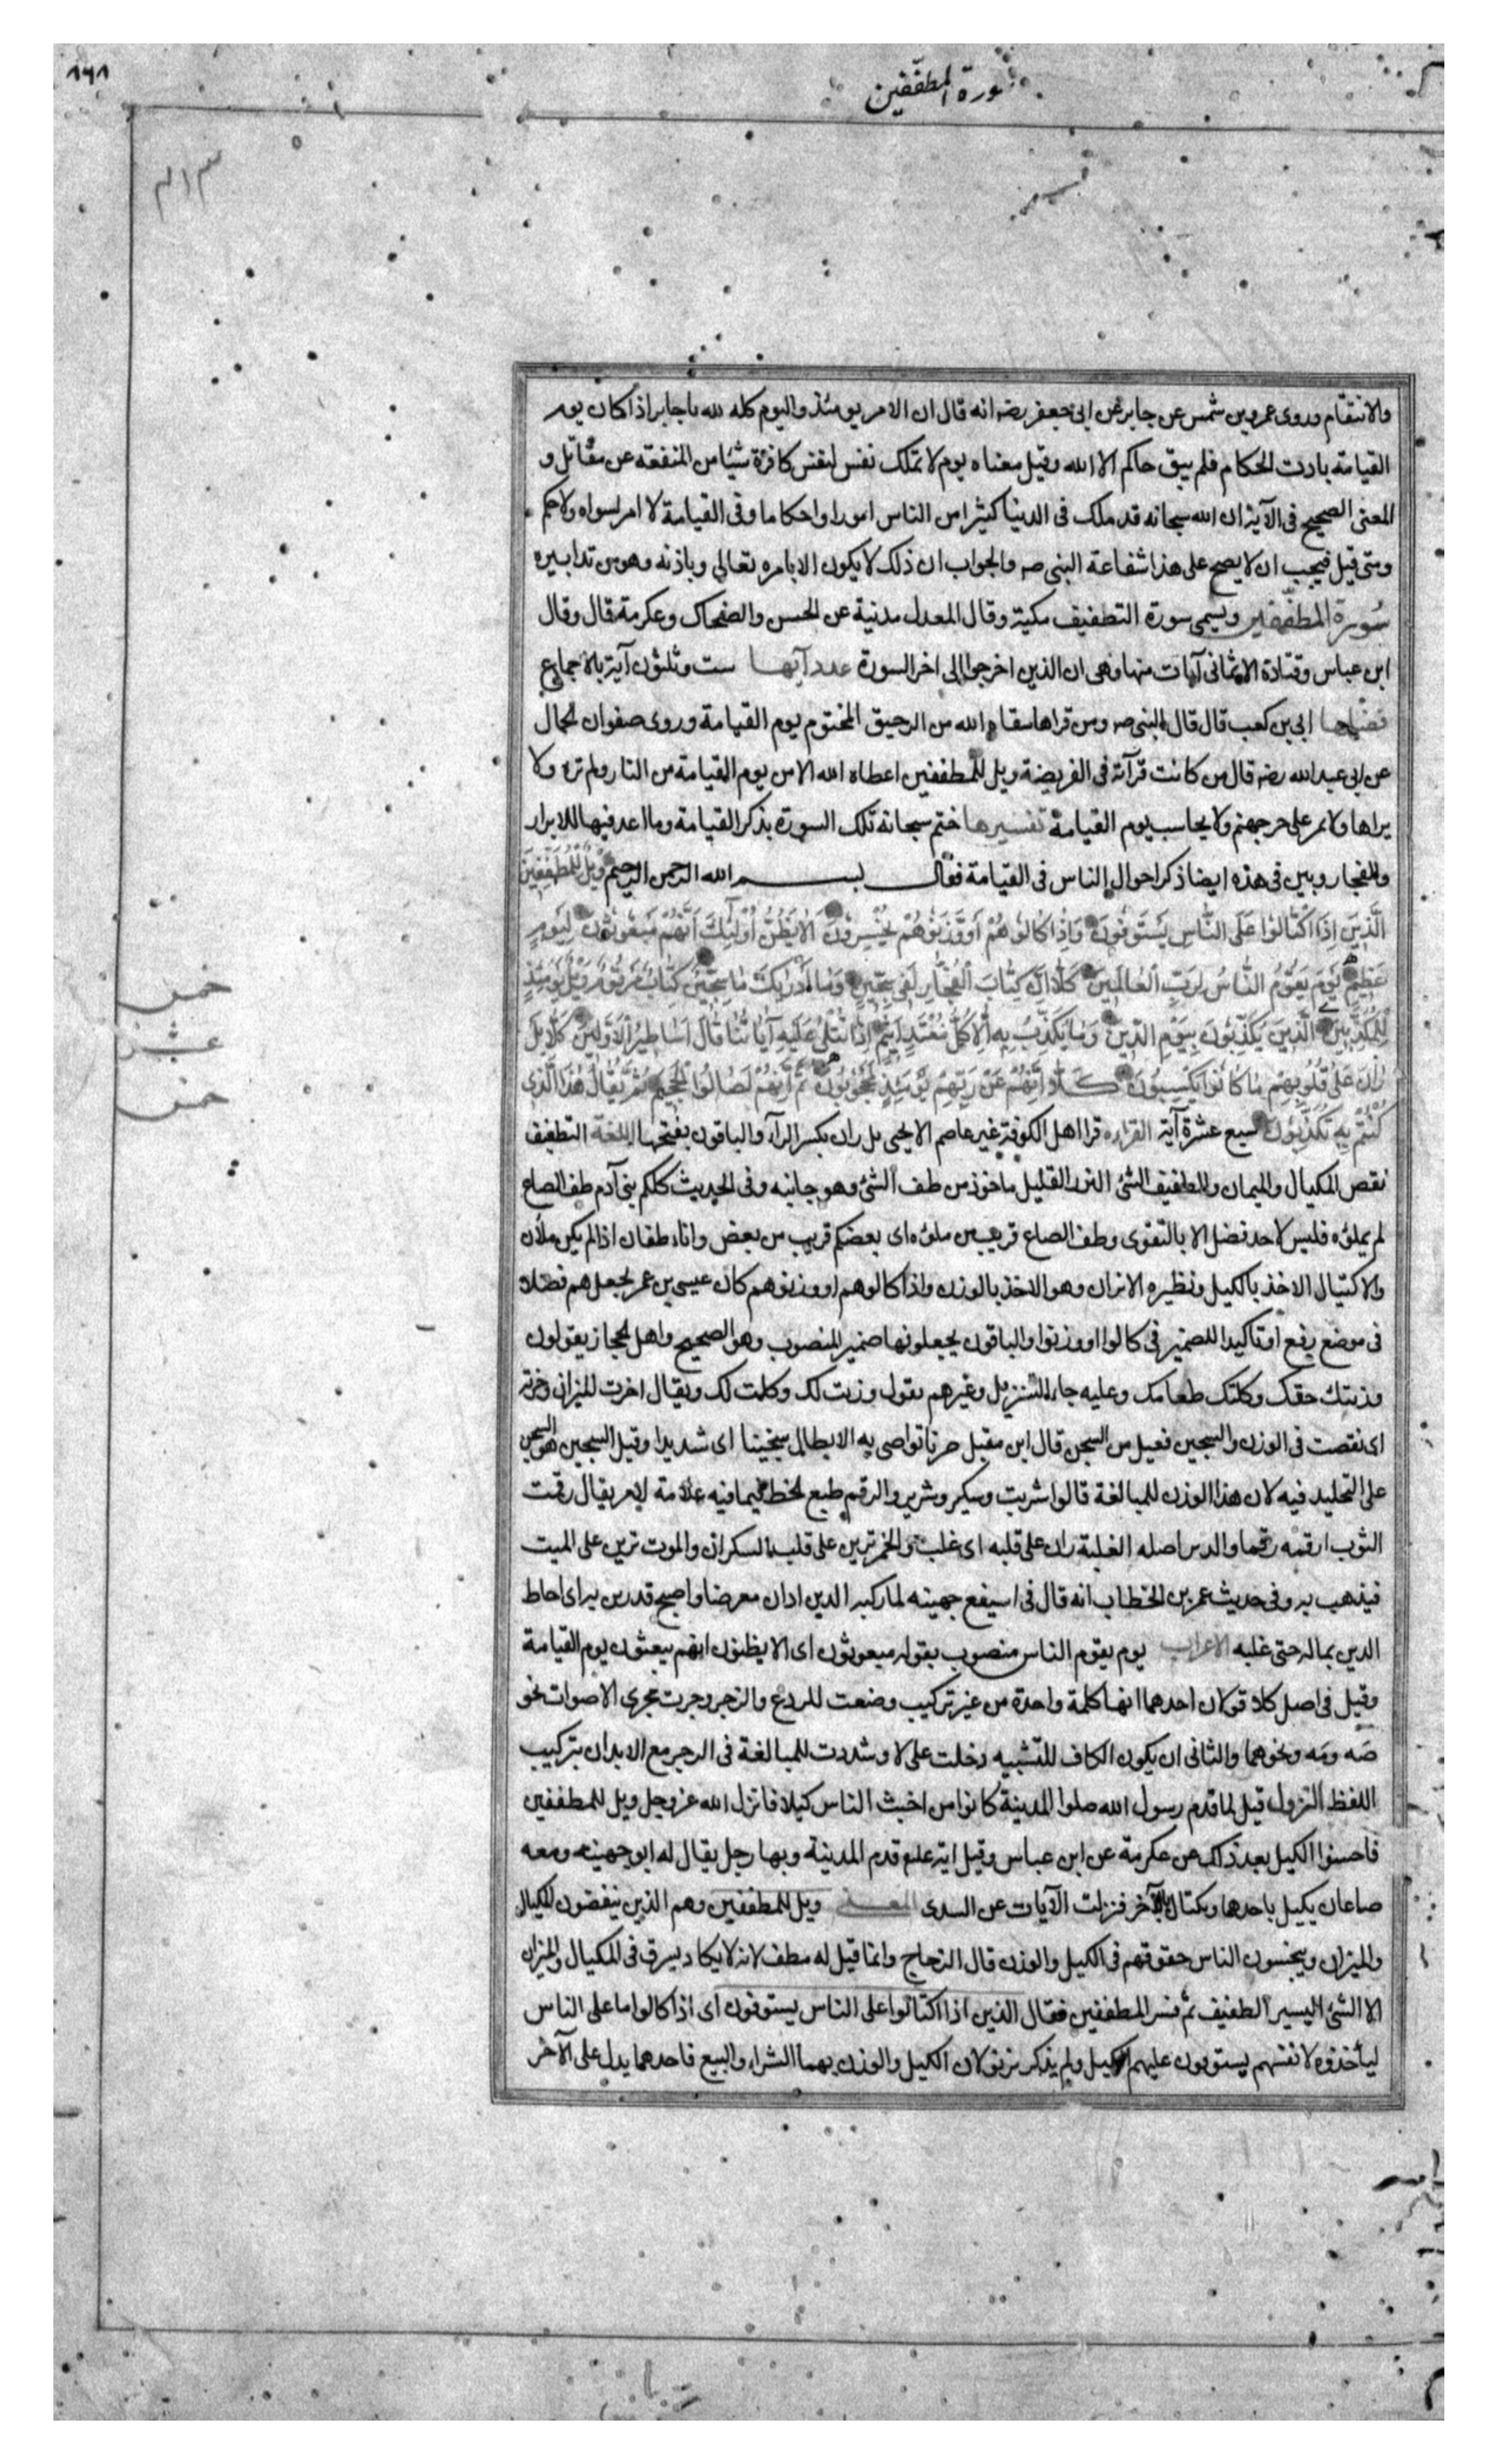 سورة المطففين
١٦١
والانتقام وروى عمرو بن شمس عن جابر عن ابي جعفر رضه انه قال ان الامر يومئذ واليوم كله لله يا جابر اذا كان يوم
القيامة بادت الحكام فلم يبق حاكم الا الله وقيل معناه يوم لا تملك نفس لنفس كافرة شيئا من المنفعه عن مقاتل و
المعنى الصحيح فى الآية ان الله سبحانه قد ملك فى الدنيا كثيرا من الناس امورا واحكاما وفى القيامة لا امر لسواه ولا حكم
ومتى قيل فيجب ان لا يصح على هذا شفاعة النبى صه والجواب ان ذلك لا يكون الا بامره تعالى وباذنه وهو من تدابيره
سورة المطففين ويسمى سورة التطفيف مكية وقال المعدل مدنية عن الحسن والضحاك وعكرمة قال وقال
ابن عباس وقتادة الا ثمانى آيات منها وهى ان الذين اجرموا الى اخر السورة عدد آيها ست وثلثون آية بالاجماع
فضلها ابى بن كعب قال قال النبى صه ومن قراها سقاه الله من الرحيق المختوم يوم القيامة وروى صفوان الجمال
عن ابى عبد الله رضه قال من كانت قرآته فى الفريضة ويل للمطففين اعطاه الله الامن يوم القيامة من النار ولم تره ولا
يراها ولا يمر على جهنم ولا يحاسب يوم القيامة تفسيرها ختم سبحانه تلك السورة بذكر القيامة وما اعد فيها للابرار
والفجار وبين فى هذه ايضا ذكر احوال الناس فى القيامة فقال بسم الله الرحمن الرحيم وَيْلٌ لِلْمُطَفِّفِينَ
الَّذِينَ إِذَا اكْتَالُوا عَلَى النَّاسِ يَسْتَوْفُونَ وَإِذَا كَالُوهُمْ أَوْ وَزَنُوهُمْ يُخْسِرُونَ أَلَا يَظُنُّ أُولَٰئِكَ أَنَّهُمْ مَبْعُوثُونَ لِيَوْمٍ
عَظِيمٍ يَوْمَ يَقُومُ النَّاسُ لِرَبِّ الْعَالَمِينَ كَلَّا إِنَّ كِتَابَ الْفُجَّارِ لَفِي سِجِّينٍ وَمَا أَدْرَاكَ مَا سِجِّينٌ كِتَابٌ مَرْقُومٌ وَيْلٌ يَوْمَئِذٍ
لِلْمُكَذِّبِينَ الَّذِينَ يُكَذِّبُونَ بِيَوْمِ الدِّينِ وَمَا يُكَذِّبُ بِهِ إِلَّا كُلُّ مُعْتَدٍ أَثِيمٍ إِذَا تُتْلَى عَلَيْهِ آيَاتُنَا قَالَ أَسَاطِيرُ الْأَوَّلِينَ كَلَّا بَلْ
رَانَ عَلَى قُلُوبِهِمْ مَا كَانُوا يَكْسِبُونَ كَلَّا إِنَّهُمْ عَنْ رَبِّهِمْ يَوْمَئِذٍ لَمَحْجُوبُونَ ثُمَّ إِنَّهُمْ لَصَالُوا الْجَحِيمِ ثُمَّ يُقَالُ هَٰذَا الَّذِي
كُنْتُمْ بِهِ تُكَذِّبُونَ سبع عشرة آية القراءه قرا اهل الكوفة غير عاصم الا يحيى بل ران بكسر الرآء والباقون بفتحها اللغة التطفيف
نقص المكيال والميزان والطفيف الشئ النزر القليل ماخوذ من طف الشئ وهو جانبه وفى الحديث كلكم بنى آدم طف الصاع
لم يملؤه فليس لاحد فضل الا بالتقوى وطف الصاع قريب من ملؤه اى بعضكم قريب من بعض واناء طفان اذا لم يكن ملأن
والاكتيال الاخذ بالكيل ونظيره الاتزان وهو الاخذ بالوزن واذا كالوهم او وزنوهم كان عيسى بن عمر يجعل هم فصلا
فى موضع رفع او تاكيدا للضمير فى كالوا او وزنوا والباقون يجعلونها ضمير المنصوب وهو الصحيح واهل الحجاز يقولون
وزنتك حقك وكلتك طعامك وعليه جاء التنزيل وغيرهم يقول وزنت لك وكلت لك ويقال اخرت الميزان وخرته
اى نقصت فى الوزن والسجين فعيل من السجن قال ابن مقبل ضربا تواصى به الابطال سجينا اى شديدا وقيل السجين هو السجن
على التخليد فيه لان هذا الوزن للمبالغة قالوا شريب وسكير وشرير والرقم طبع الخط فيما فيه علامة لامر يقال رقمت
الثوب ارقمه رقما والرين اصله الغلبة ران على قلبه اى غلب والخمر ترين على قلب السكران والموت ترين على الميت
فيذهب به وفى حديث عمر بن الخطاب انه قال فى اسيفع جهينه لما ركبه الدين ادان معرضا واصبح قدرين به اى احاط
الدين بماله حتى غلبه الاعراب يوم يقوم الناس منصوب بقوله مبعوثون اى الا يظنون انهم يبعثون يوم القيامة
وقيل فى اصل كلا قولان احدهما انها كلمة واحدة من غير تركيب وضعت للردع والزجر وجرت مجرى الاصوات نحو
صَه ومَه ونحوهما والثانى ان يكون الكاف للتشبيه دخلت على لا وشددت للمبالغة فى الزجر مع الايذان بتركيب
اللفظ النزول قيل لما قدم رسول الله صلوا المدينة كانوا من اخبث الناس كيلا فانزل الله عز وجل ويل للمطففين
فاحسنوا الكيل بعد ذلك عن عكرمة عن ابن عباس وقيل انه علم قدم المدينة وبها رجل يقال له ابو جهينه ومعه
صاعان يكيل باحدهما ويكتال بالآخر فنزلت الآيات عن السدى المعنى ويل للمطففين وهم الذين ينقصون المكيال
والميزان ويبخسون الناس حقوقهم فى الكيل والوزن قال الزجاج وانما قيل له مطفف لانه لا يكاد يسرق فى المكيال والميزان
الا الشئ اليسير الطفيف ثم فسر المطففين فقال الذين اذا اكتالوا على الناس يستوفون اى اذا كالوا ما على الناس
ليأخذوه لانفسهم يستوفون عليهم الكيل ولم يذكر يزنو لان الكيل والوزن بهما الشراء والبيع فاحدهما يدل على الآخر
خمس
عشر
خمس